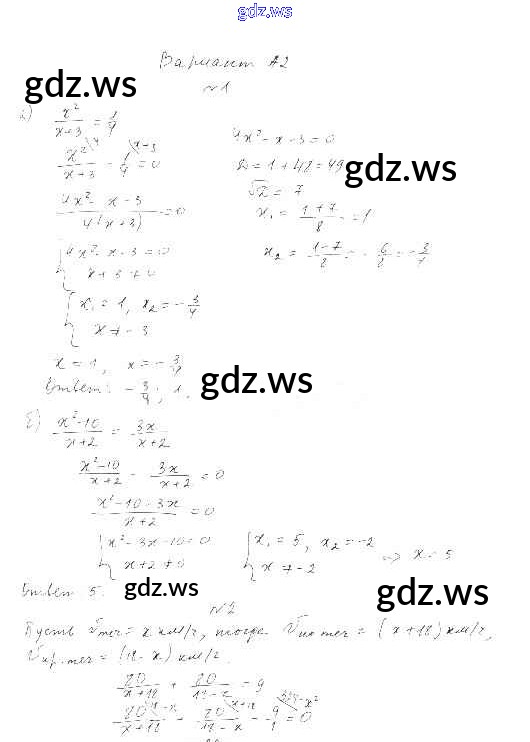 gdz.ws
Вариант А2
gdz.ws
№1
а) x²/(x+3) = 1/4
x²/(x+3) - 1/4 = 0
(4x² - x - 3)/(4(x+3)) = 0
{ 4x² - x - 3 = 0
x + 3 ≠ 0
{ x₁ = 1, x₂ = -3/4
x ≠ -3
x = 1, x = -3/4
Ответ: -3/4; 1.
4x² - x - 3 = 0
D = 1 + 48 = 49
gdz.ws
√D = 7
x₁ = (1+7)/8 = 1
x₂ = (1-7)/8 = -6/8 = -3/4
gdz.ws
б) (x²-10)/(x+2) = 3x/(x+2)
(x²-10)/(x+2) - 3x/(x+2) = 0
(x²-10-3x)/(x+2) = 0
{ x² - 3x - 10 = 0
x + 2 ≠ 0
{ x₁ = 5, x₂ = -2
x ≠ -2
=> x = 5
Ответ 5.
gdz.ws
gdz.ws
№2
Пусть Vтеч = x км/ч, тогда Vпо теч = (x+18) км/ч,
Vпр.теч = (18-x) км/ч.
80/(x+18) + 80/(18-x) = 9
80/(x+18) + 80/(18-x) - 9/1 = 0